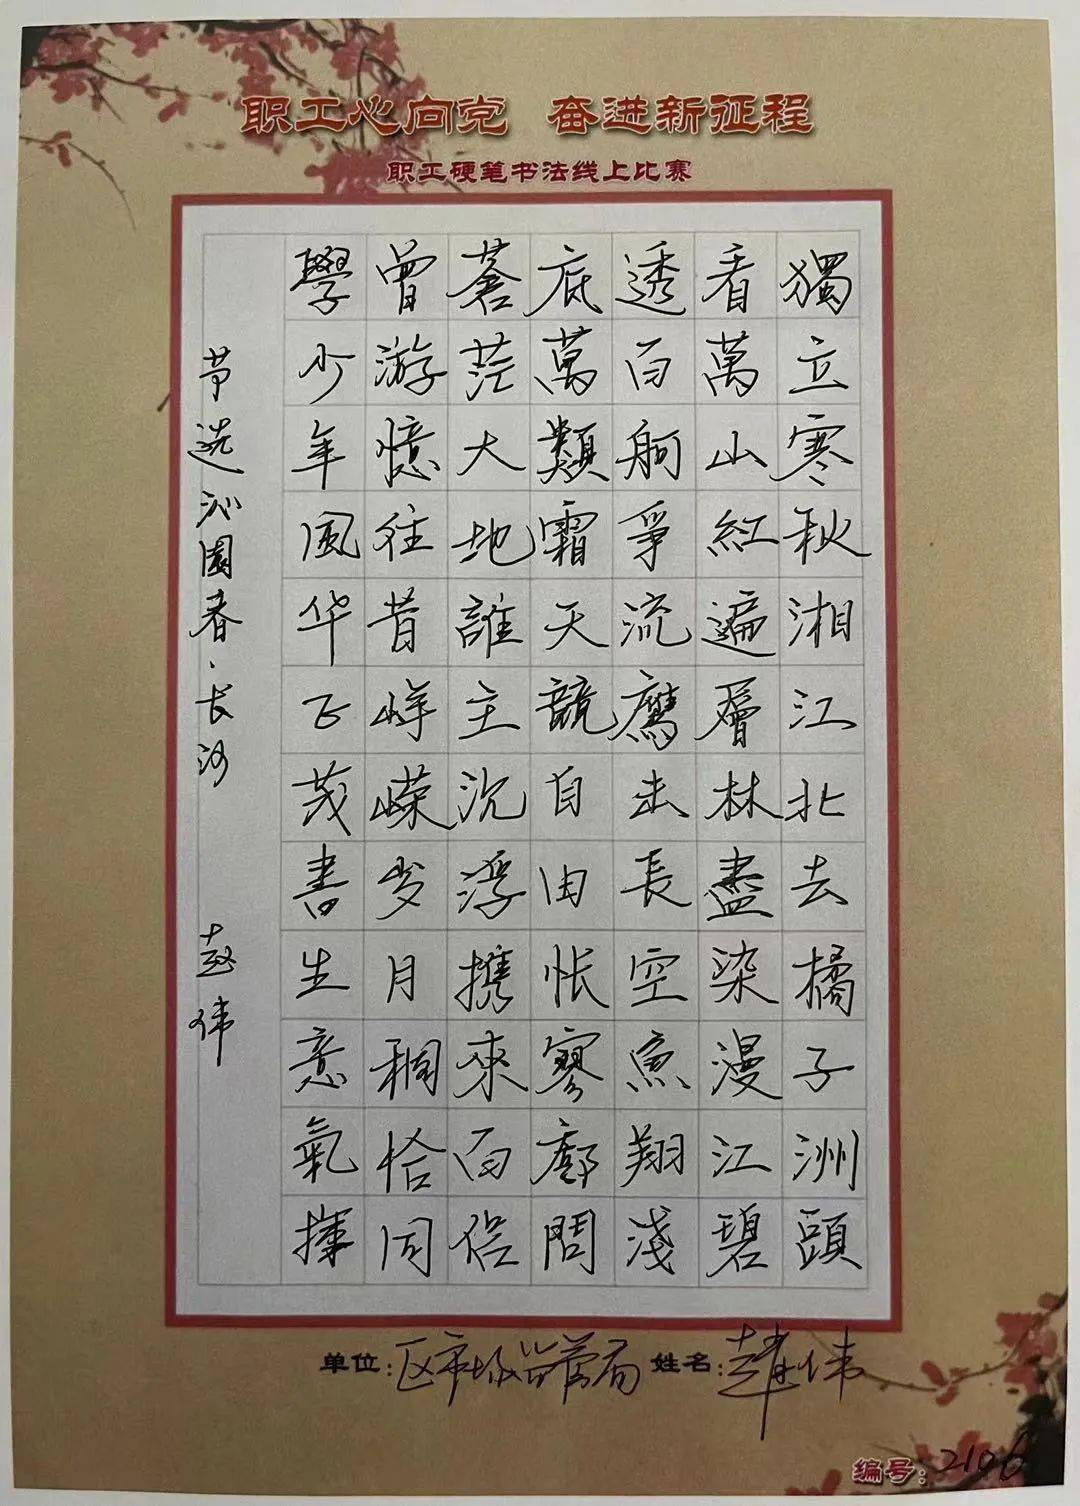 职工心向党 奋进新征程
职工硬笔书法线上比赛
獨立寒秋湘江北去橘子洲頭
看萬山紅遍層林盡染漫江碧
透百舸爭流鷹击長空魚翔淺
底萬類霜天競自由怅寥廓問
蒼茫大地誰主沉浮携來百侣
曾游憶往昔峥嵘岁月稠恰同
學少年風华正茂書生意氣揮
节选沁園春·长沙 赵伟
单位:区市场监管局 姓名:赵伟
编号:2106